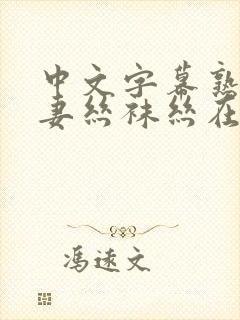 中文字幕熟
妻丝袜丝在
冯远文